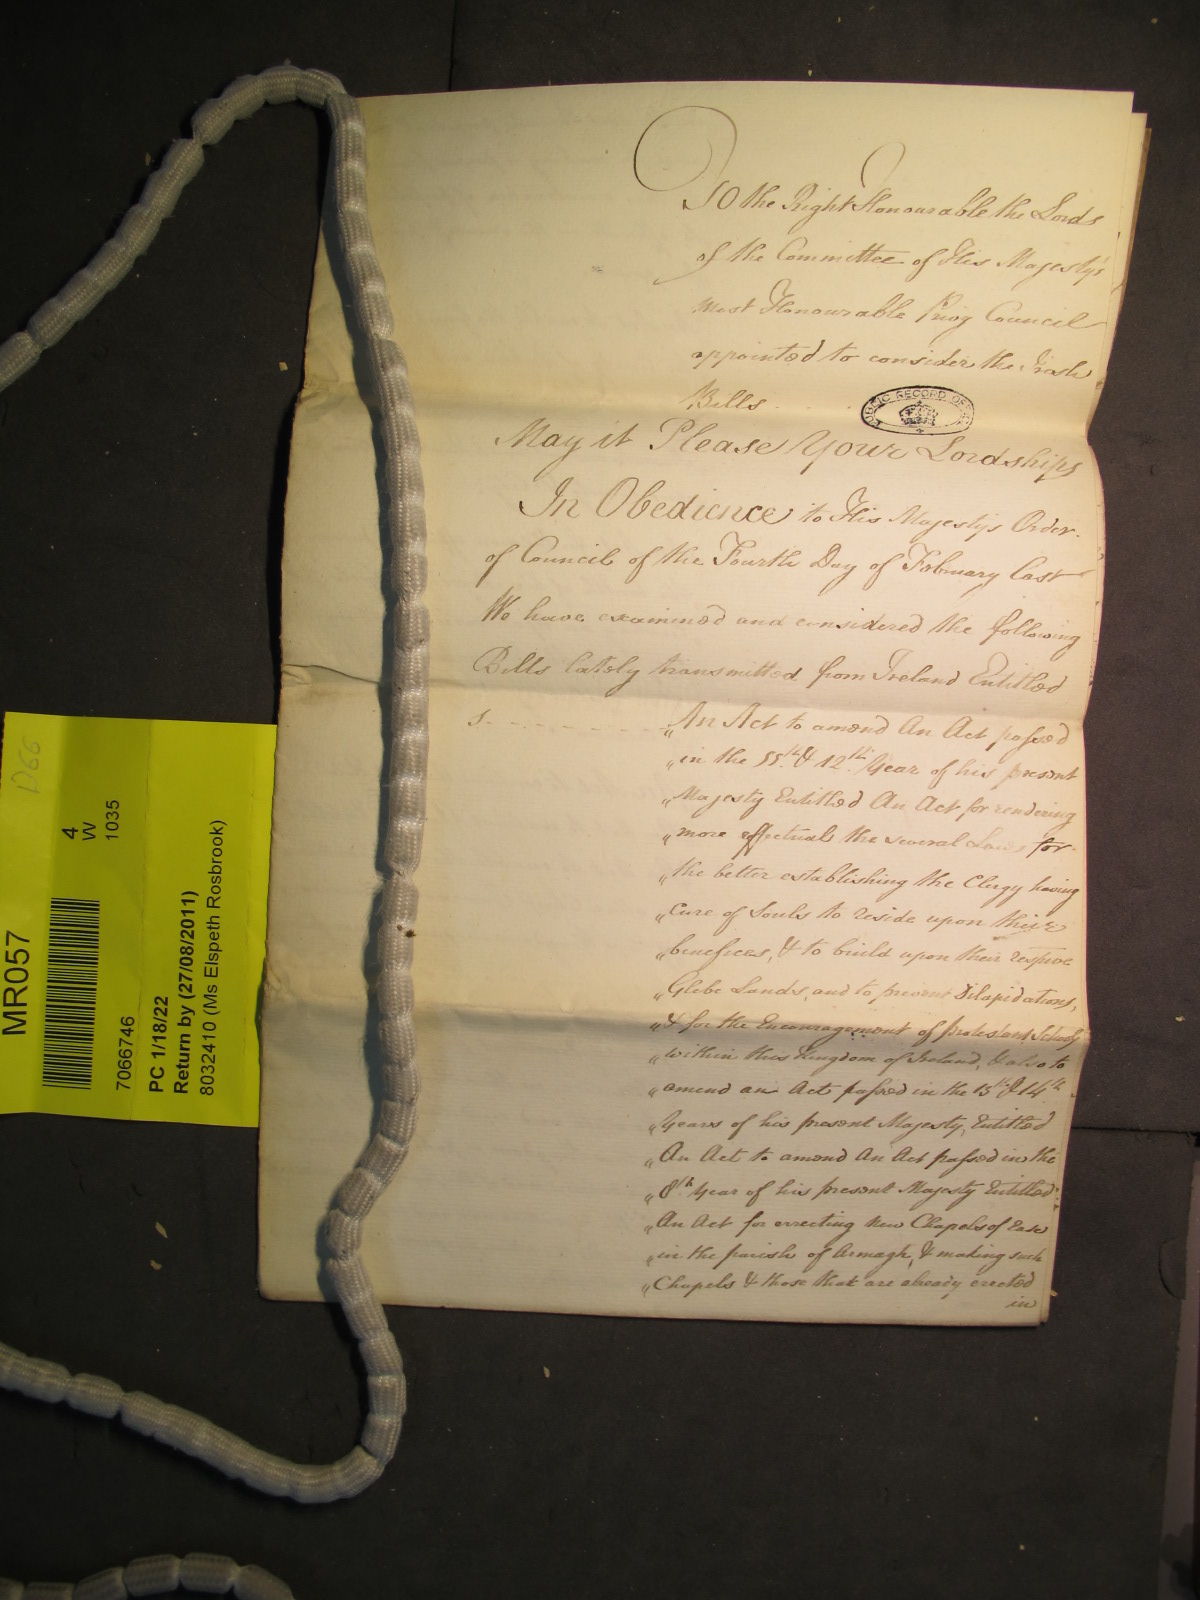 TO the Right Honourable the Lords
of the Committee of His Majesty's
most Honourable Privy Council
appointed to consider the Irish
Bills
PUBLIC RECORD OFFICE
May it Please Your Lordships
In Obedience to His Majestys Order
of Council of the Fourth Day of February last
We have examined and considered the following
Bills lately transmitted from Ireland Entitled
"An Act to amend An Act passed
"in the 11th & 12th Year of his present
"Majesty Entitled An Act for rendering
"more effectual the several Laws for
"the better establishing the Clergy having
"Cure of Souls to reside upon their
"benefices, & to build upon their respive
"Glebe Lands, and to prevent Dilapidations,
"& for the Encouragement of protestant Schools
"within this Kingdom of Ireland, & also to
"amend an Act passed in the 13th & 14th
"Years of his present Majesty, Entitled
"An Act to amend An Act passed in the
"8th Year of his present Majesty Entitled
"An Act for errecting new Chapels of Ease
"in the parish of Armagh, & making such
"Chapels & those that are already erected
in
D66
MR057
4
W
1035
7066746
PC 1/18/22
Return by (27/08/2011)
8032410 (Ms Elspeth Rosbrook)